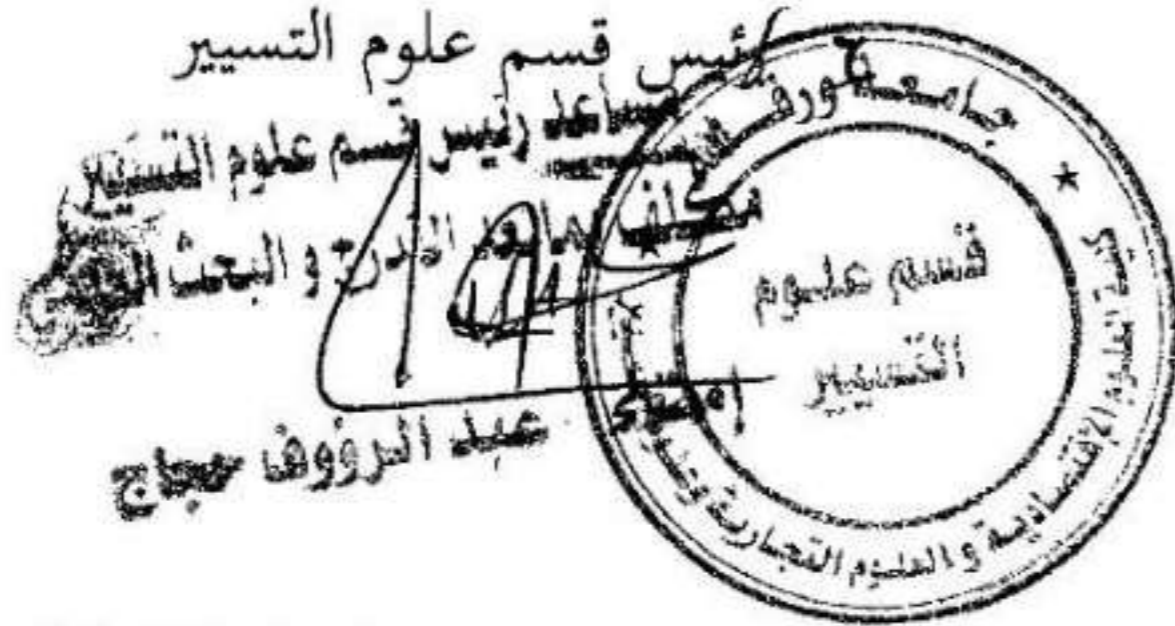 رئيس قسم علوم التسيير
مساعد رئيس قسم علوم التسيير
مكلف بما بعد التدرج و البحث العلمي
إمضاء: عبد الرؤوف حجاج
جامعة ورقلة
كلية العلوم الاقتصادية و العلوم التجارية وعلوم
قسم علوم
التسيير